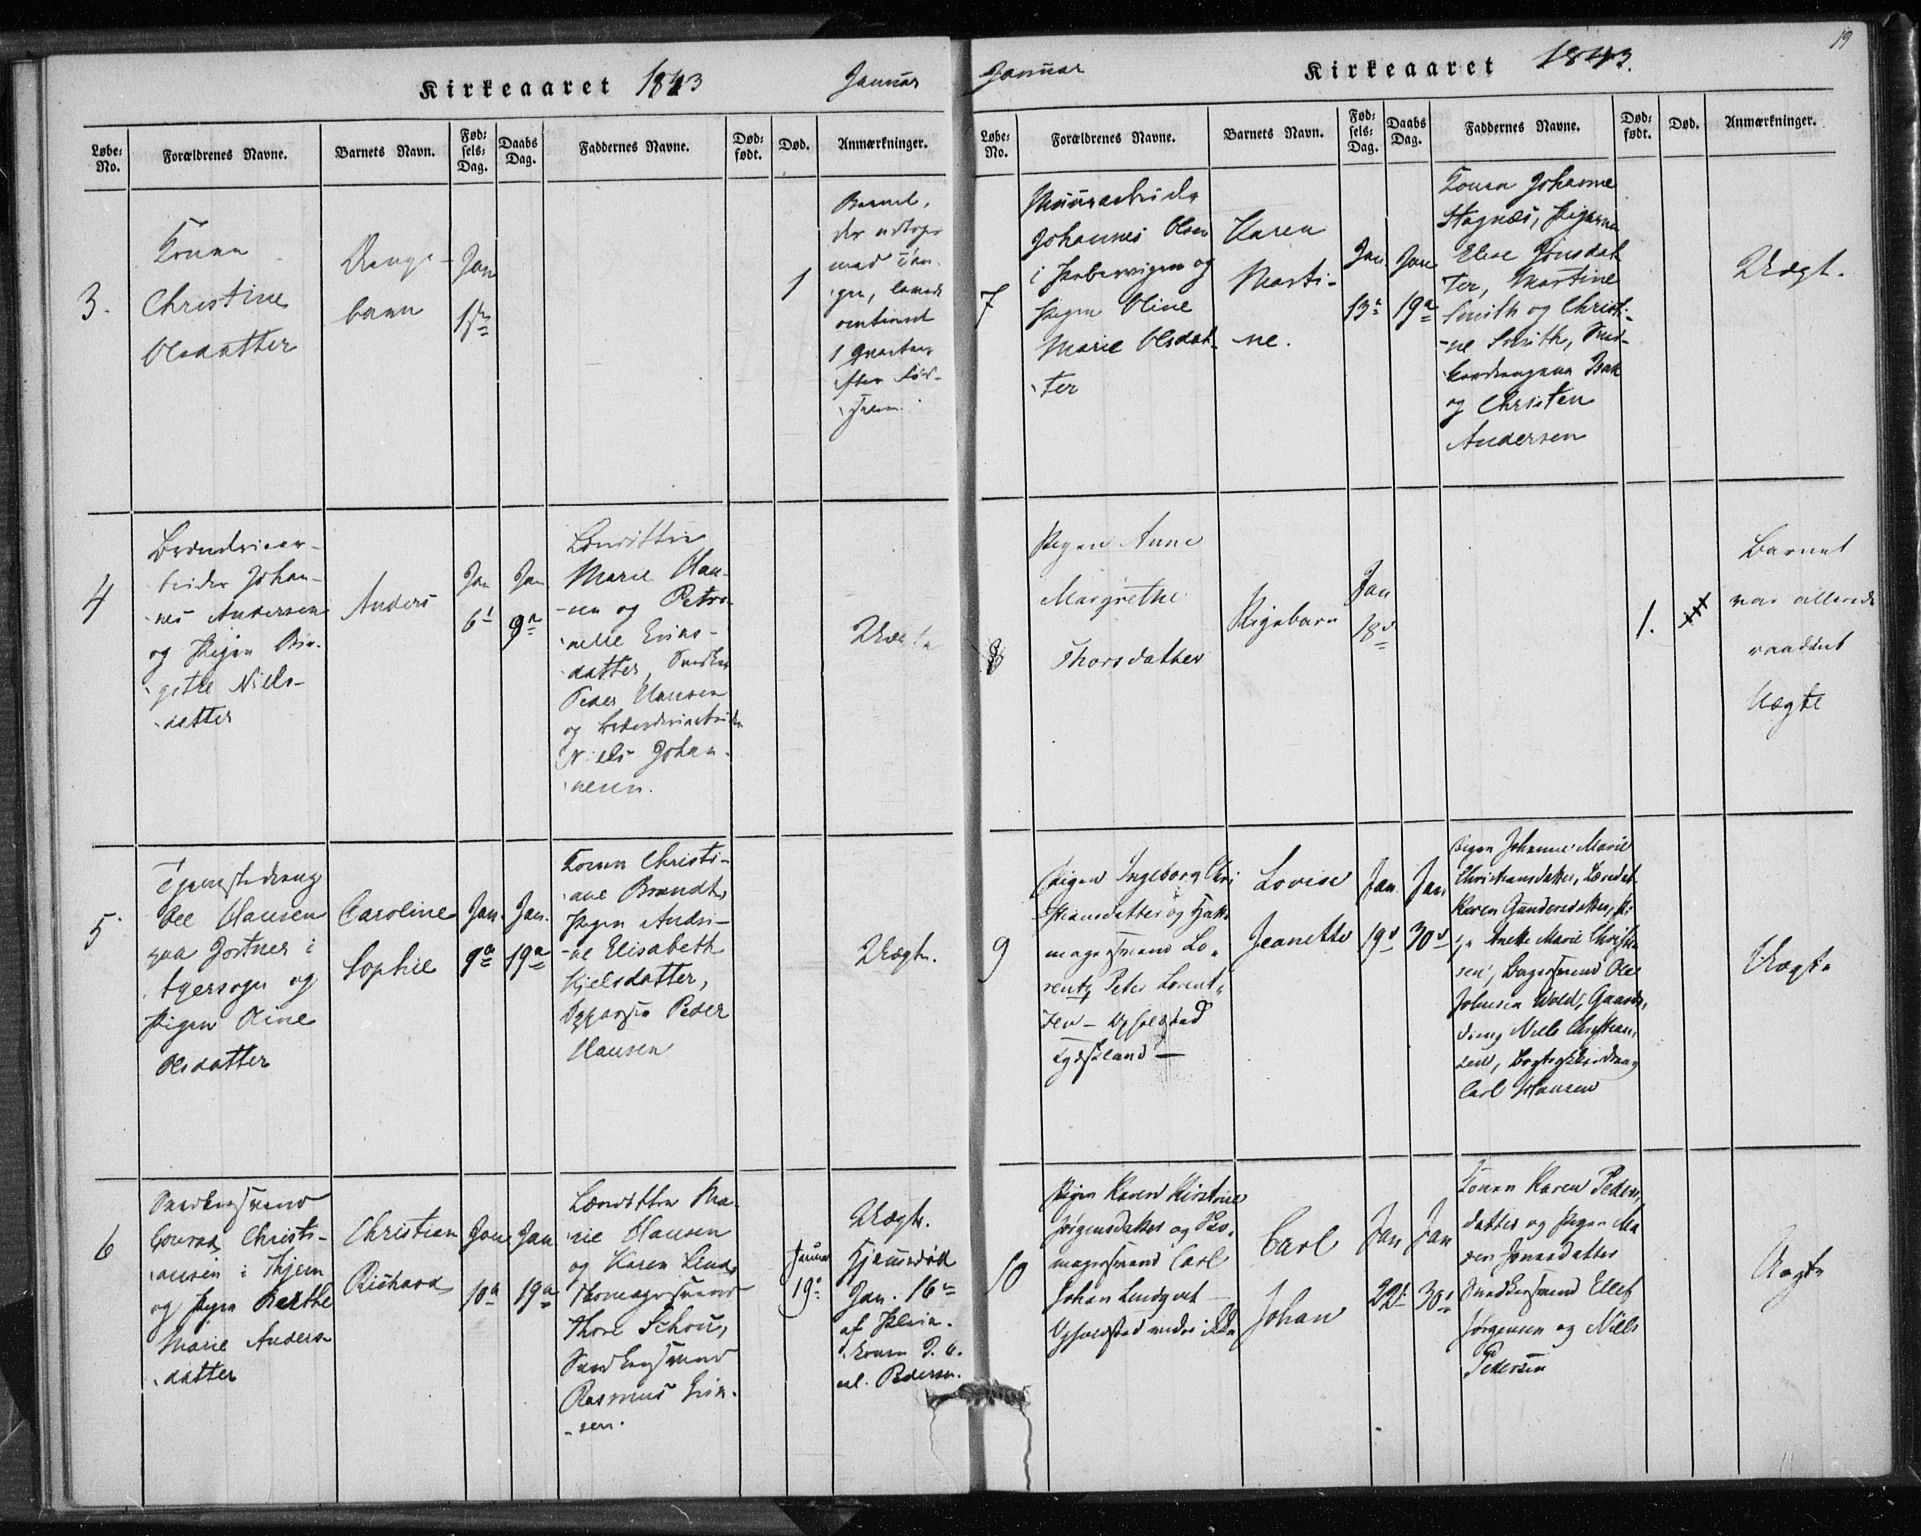 Kirkeaaret 1843
Januar
Løbe-No.
Forældrenes Navne.
Barnets Navn.
Fød-sels-Dag.
Daabs Dag.
Faddernes Navne.
Død-født.
Død.
Anmærkninger.
3.
Konen
Christine
Olsdatter
Drenge-
barn
Jan
1
Barnet,
1 Qvarteer
efter Fød-
selen.
4
Johan-
nes Andersen
og Pigen Bir-
gitte Niels-
datter
Anders
Jan
6
Jan
9
Marie Han-
sen og Petro-
nelle Erics-
datter, Snedker
Peder Hansen
og
Niels Johan-
nesen.
Uægte
5
Tjenestedreng
Ole Hansen
paa
Agersogn og
Pigen Oline
Olsdatter
Caroline
Sophie
Jan.
9
Jan.
19
Konen Christi-
ane Brandt,
Pigen Andri-
ne Elisabeth
Kjelsdatter,
Peder
Hansen
Uægte.
6
Snedkersvend
Conrad Christi-
ansen i
og Pigen Berthe
Marie Anders-
datter
Christian
Richard
Jan
10
Jan
19
Ma-
rie Hansen
og Karen Lund,
Skomagersvend
Thore Schou,
Snedkersvend
Rasmus Erik-
sen.
Januar
19
Uægte.
Hjemmedøbt
Jan. 16
af
Pedersen.
Januar
Kirkeaaret 1843.
19
Løbe-No.
Forældrenes Navne.
Barnets Navn.
Fød-sels-Dag.
Daabs Dag.
Faddernes Navne.
Død-født.
Død.
Anmærkninger.
7
Muurarbeider
Johannes Olsen
i Pipervigen og
Pigen Oline
Marie Olsdat-
ter
Karen
Marti-
ne.
Jan
13
Jan
19
Konen Johanne
Pigerne
Else Jonsdat
ter, Martine
Smith og Christi-
ne Smith, Sned-
kerdrengene Isak
og Christen
Andersen
Uægt.
8
Pigen Anne
Margrethe
Thorsdatter
Pigebarn
Jan
18
1.
Barnet
var allerede
raaddent
Uægte
9
Pigen Ingeborg Chri
stiansdatter og
magersvend Lo-
rentz Peter Lorent-
zen — Opholdsted
Tydskland —
Lovise
Jeanette
Jan
19
Jan
30
Pigen Johanne Marie
Christiansdatter,
Karen Gundersdatter, Pi-
ge Anette Marie Christen
sen, Bagersvend Ole
Johnsen Wold, Gaards-
dreng Niels Christian-
sen, Bogtrykkerdreng
Carl Hansen
Uægte
10
Pigen Karen Kirstine
Jørgensdatter og Sko-
magersvend Carl
Johan Lindqvist —
Opholdsted vides ikke
Carl
Johan
Jan
22
Jan
30
Konen Karen Peders-
datter og Pigen Ma
ren Jonasdatter
Snedkersvend Ellef
Jørgensen og Niels
Pedersen
Uægte